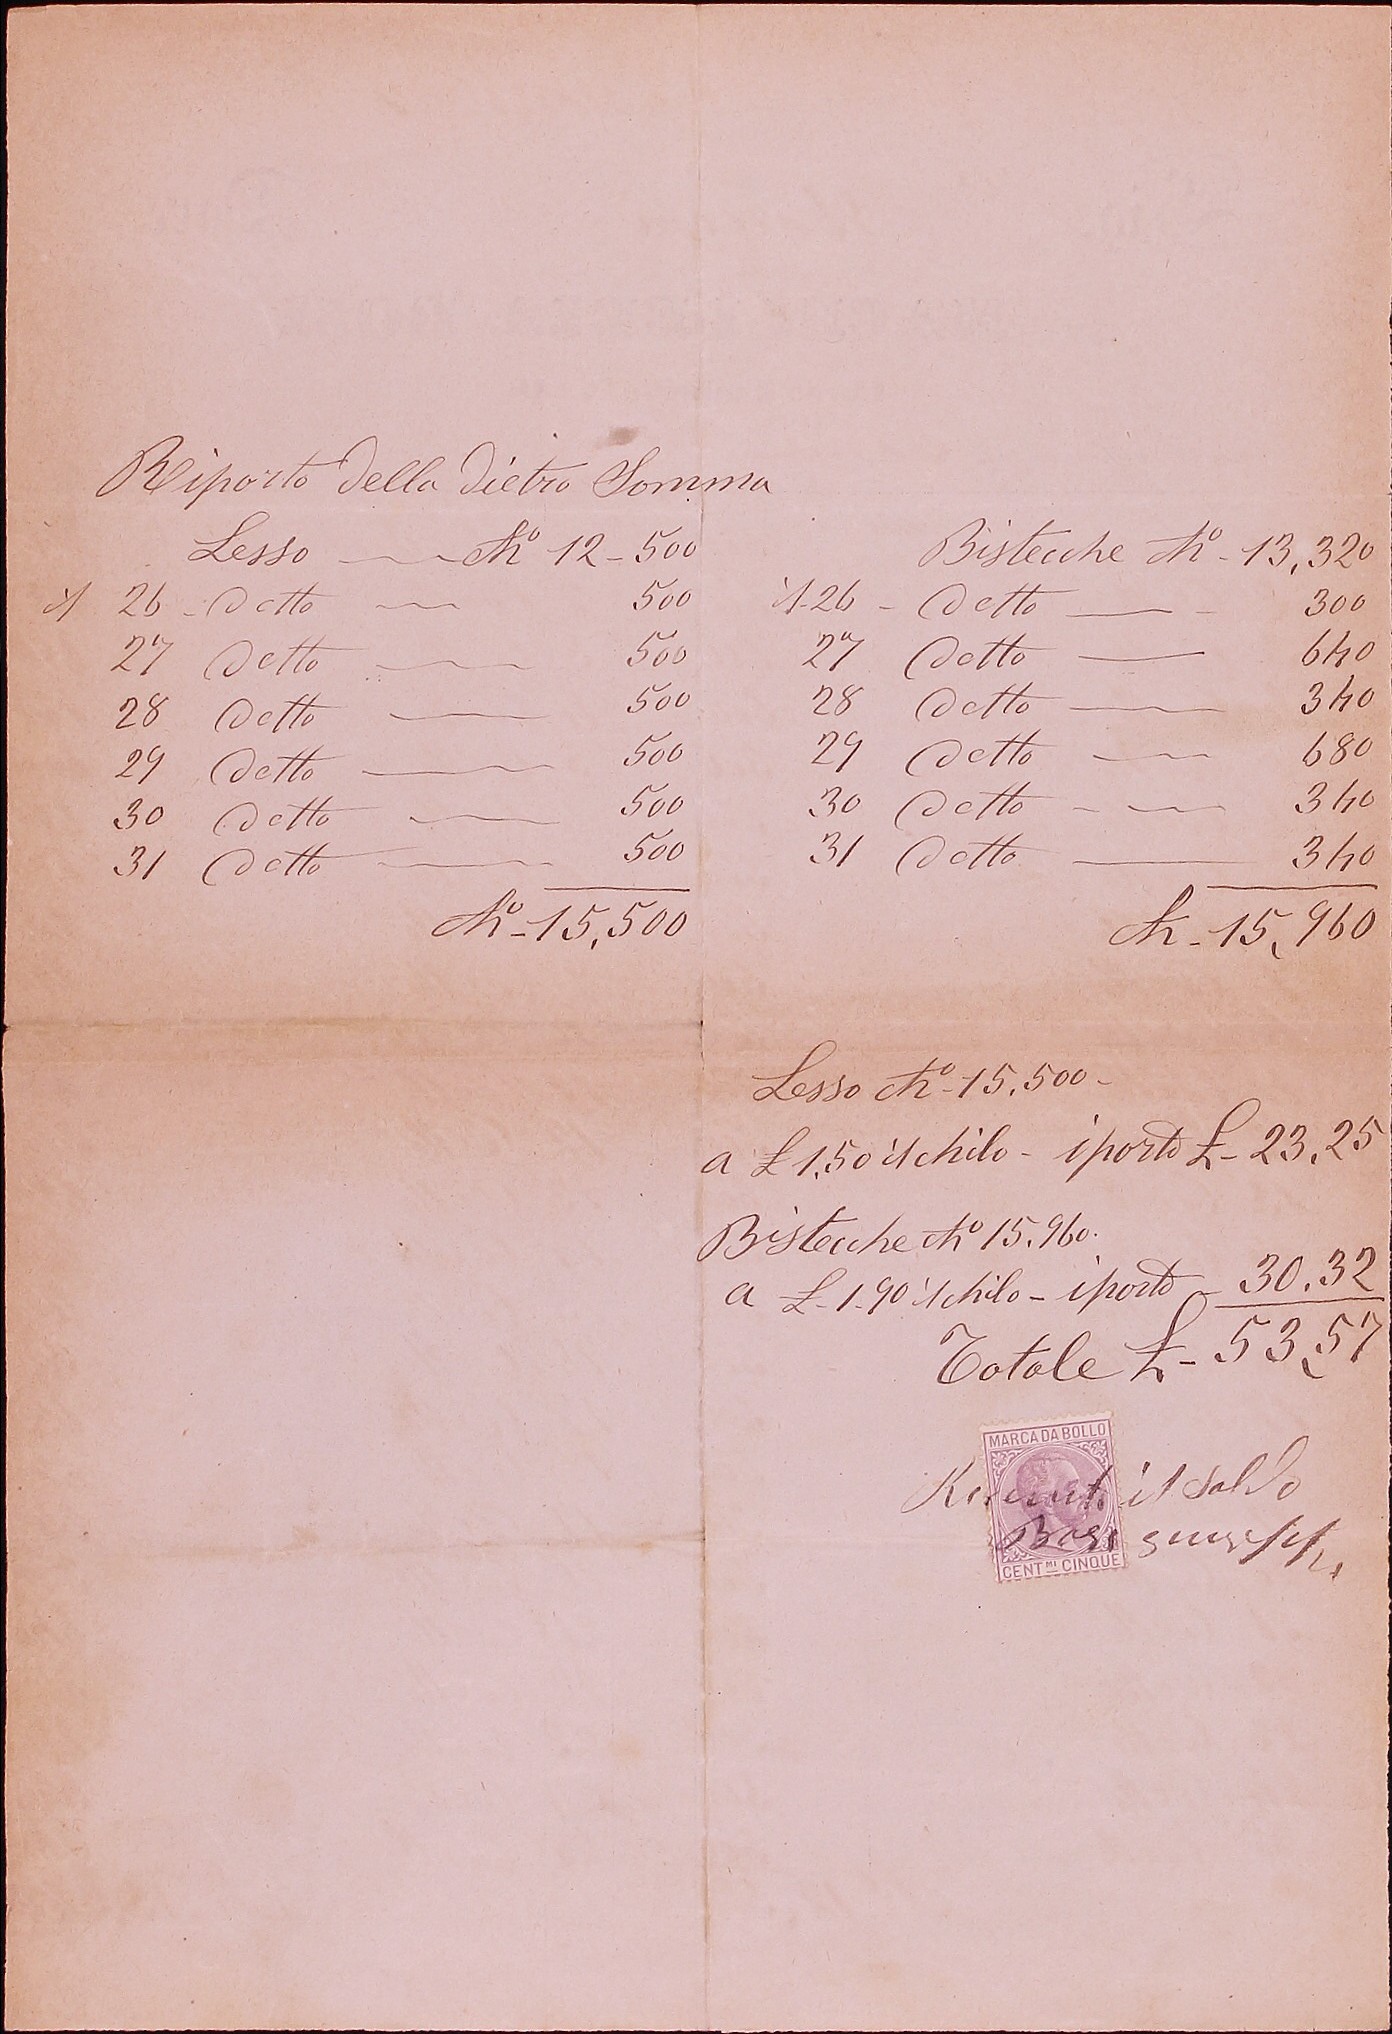 Riporto della dietro Somma
Lesso Chº 12-500
il 26 - Detto 500
27 Detto 500
28 Detto 500
29 Detto 500
30 Detto 500
31 Detto 500
Chº-15,500
Bistecche Chº-13,320
il-26 - Detto - 300
27 Detto 640
28 Detto 340
29 Detto 680
30 Detto 340
31 Detto 340
Ch-15,960
Lesso Chº-15,500-
a £ 1,50 il chilo - iporto £-23,25
Bistecche Chº 15,960.
a £-1-90 il chilo - iporto - 30.32
Totale £-53,57
MARCA DA BOLLO
il Saldo
CENT.MI CINQUE